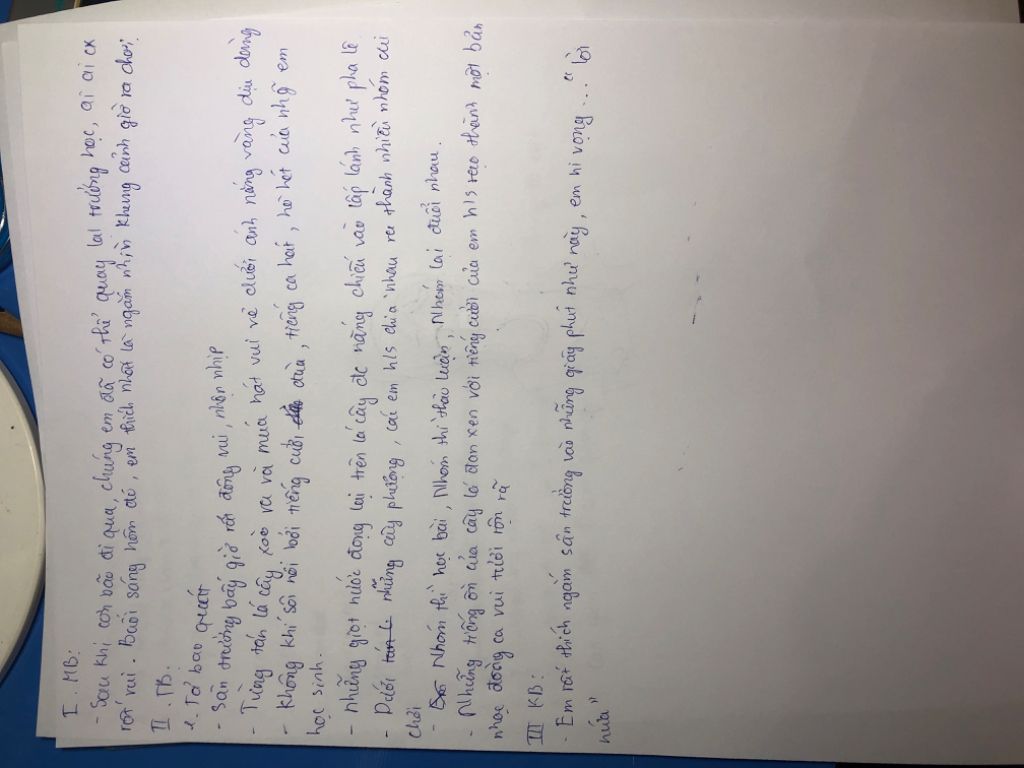 I. MB:
- Sau khi cơn bão đi qua, chúng em đã có thể quay lại trường học, ai ai cx
rất vui. Buổi sáng hôm đó, em thích nhất là ngắm nhìn khung cảnh giờ ra chơi.
II. TB:
1. Tả bao quát
- Sân trường bấy giờ rất đông vui, nhộn nhịp
- Từng tán lá cây xòe ra và múa hát vui vẻ dưới ánh nắng vàng dịu dàng
- Không khí sôi nổi bởi tiếng cười đùa, tiếng ca hát, hò hét của nhg~ em
học sinh.
- Những giọt nước đọng lại trên lá cây đc nắng chiếu vào lấp lánh như pha lê
- Dưới những cây phượng, các em h/s chia nhau ra thành nhiều nhóm để
chơi
- Nhóm thì học bài, Nhóm thì thảo luận, Nhóm lại đuổi nhau.
- Những tiếng ồn của cây lá đan xen với tiếng cười của em h/s tạo thành một bản
nhạc đồng ca vui tươi rộn rã
III KB:
- Em rất thích ngắm sân trường vào những giây phút như này, em hi vọng..." lời
nữa"